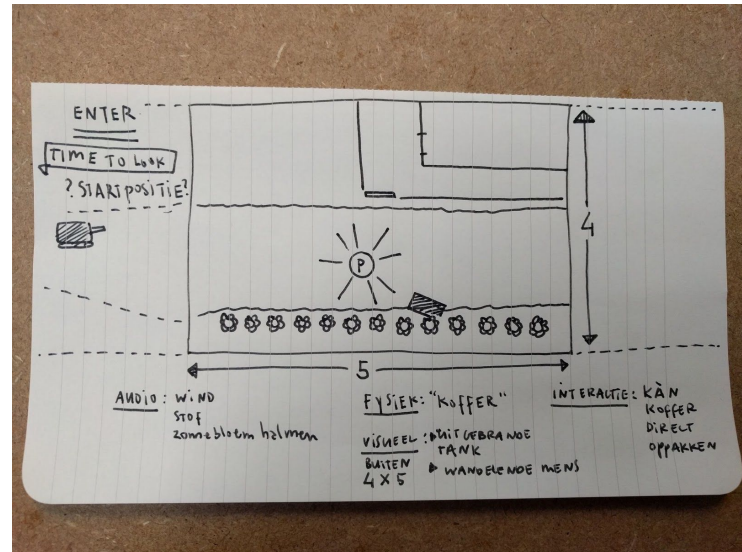 ENTER
TIME TO LOOK
? STARTPOSITIE?
P
4
5
AUDIO: WIND
STOF
zonnebloem halmen
FYSIEK: "KOFFER"
VISUEEL: ▸UITGEBRANDE
TANK
BUITEN
4 X 5 ▸ WANDELENDE MENS
INTERACTIE: KÀN
KOFFER
DIRECT
OPPAKKEN